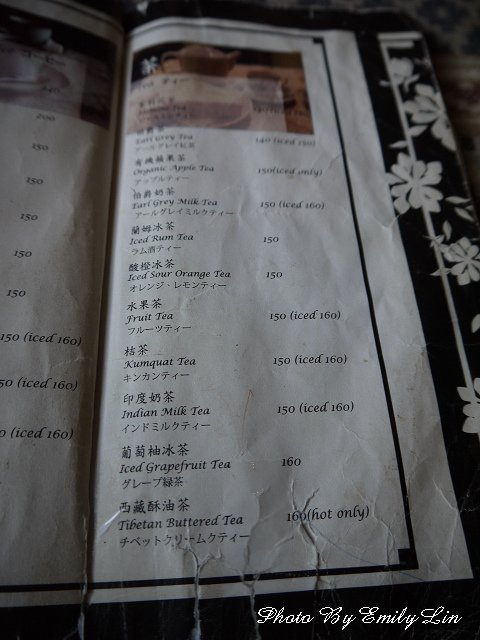 200
150
150
150
150
150
150 (iced 160)
150 (iced 160)
150 (iced 160)
茶
Tea ティー
Earl Grey Tea 140 (iced 150)
アールグレイ紅茶
有機蘋果茶
Organic Apple Tea 150(iced only)
アップルティー
伯爵奶茶
Earl Grey Milk Tea 150 (iced 160)
アールグレイミルクティー
蘭姆冰茶
Iced Rum Tea 150
ラム酒ティー
酸橙冰茶
Iced Sour Orange Tea 150
オレンジ・レモンティー
水果茶
Fruit Tea 150 (iced 160)
フルーツティー
桔茶
Kumquat Tea 150 (iced 160)
キンカンティー
印度奶茶
Indian Milk Tea 150 (iced 160)
インドミルクティー
葡萄柚冰茶
Iced Grapefruit Tea 160
グレープ緑茶
西藏酥油茶
Tibetan Buttered Tea 160(hot only)
チベットクリームクティー
Photo By Emily Lin